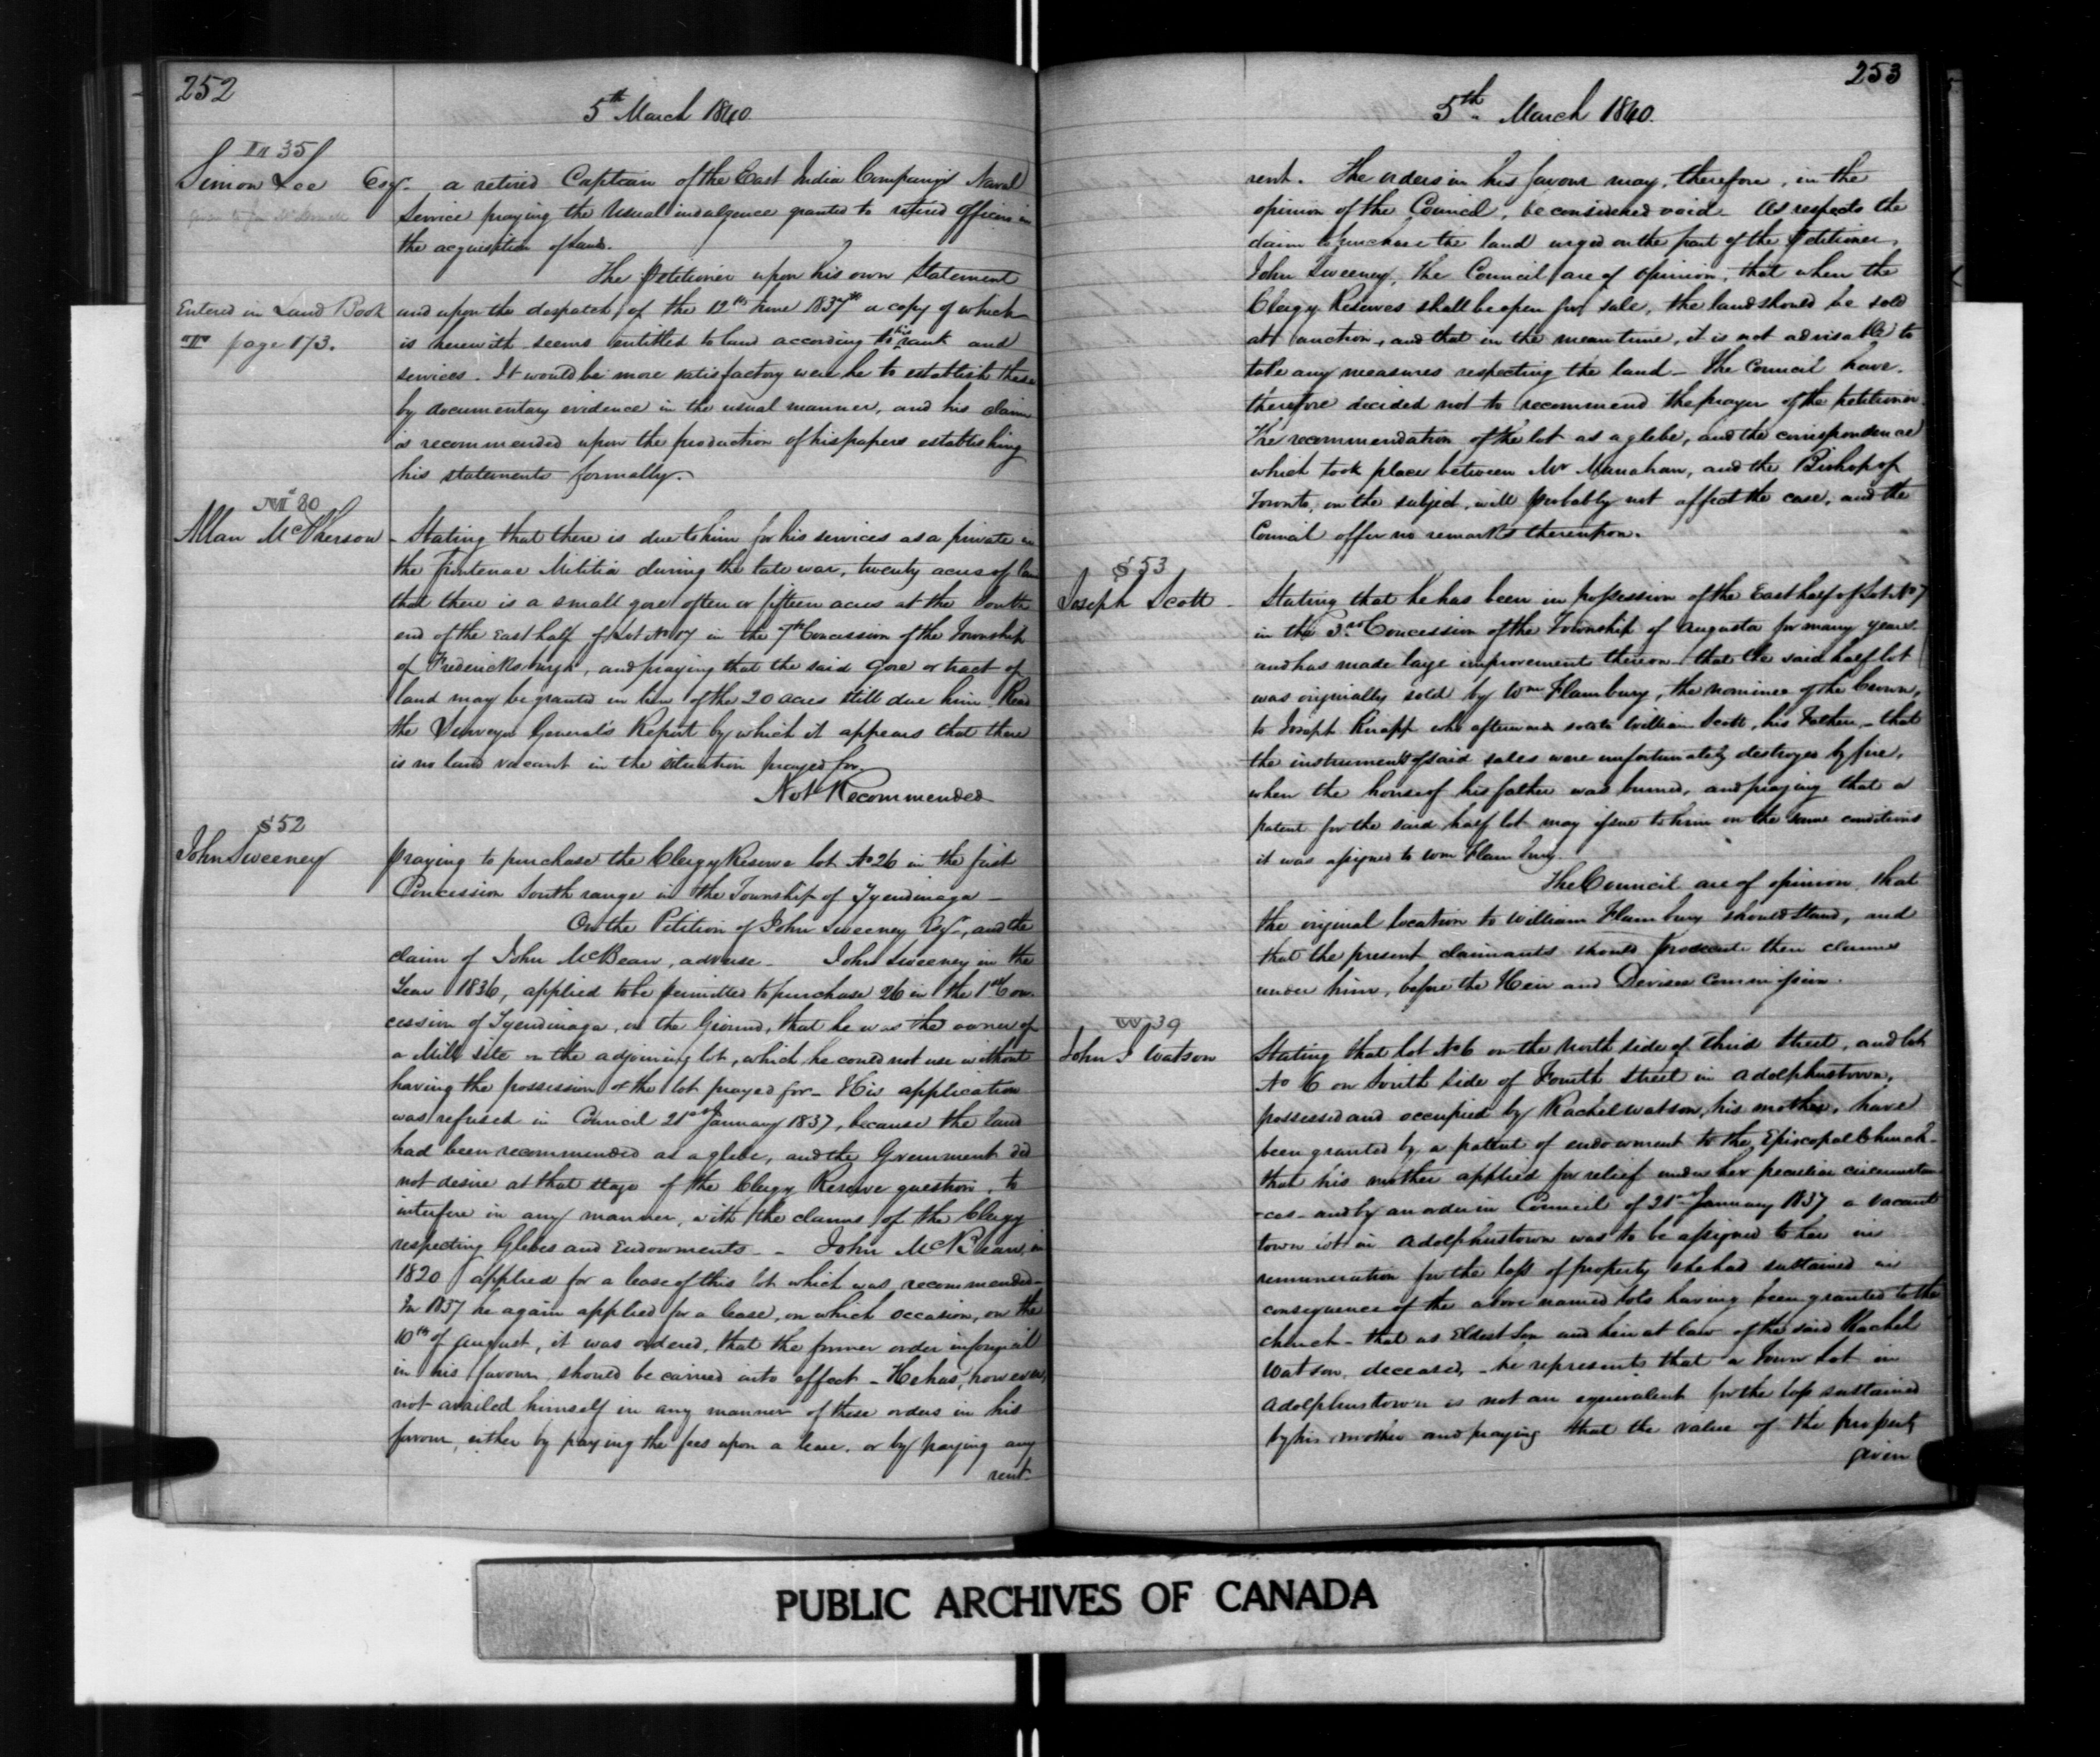 252
5th March 1840.
35
Simon Lee Esqr. a retired Captain of the East India Company's Naval
Service praying the usual indulgence granted to retired Officers in
the acquisition of land.
The Petitioner upon his own Statement
Entered in Land Book
page 173.
and upon the despatch of the 12th June 1837 a copy of which
is herewith seems entitled to land according to his rank and
services. It would be more satisfactory were he to establish these
by documentary evidence in the usual manner, and his claim
is recommended upon the production of his papers establishing
his statements formally.
Allan McPherson
- Stating that there is due to him for his services as a private in
the Frontenac Militia during the late war, twenty acres of land
that there is a small gore of ten or fifteen acres at the South
end of the East half of Lot No 17 in the 7th Concession of the Township
of Fredericksburgh, and praying that the said Gore or tract of
land may be granted in lieu of the 20 acres still due him Read
the Surveyor General's Report by which it appears that there
is no land vacant in the situation prayed for.
Not Recommended
S 52
John Sweeney
praying to purchase the Clergy Reserve lot No 26 in the first
Concession South range in the Township of Tyendinaga -
On the Petition of John Sweeney Esqr., and the
claim of John McBean, adverse - John Sweeney in the
Year 1836, applied to be permitted to purchase 26 in the 1st Con-
cession of Tyendinaga, on the Ground, that he was the owner of
a Mill site on the adjoining lot, which he could not use without
having the possession of the lot prayed for - His application
was refused in Council 21st January 1837, because the land
had been recommended as a glebe, and the Government did
not desire at that stage of the Clergy Reserve question, to
interfere in any manner, with the claims of the Clergy
respecting Glebes and Endowments - - John McBean, in
1820 applied for a lease of this lot which was recommended -
In 1837 he again applied for a lease, on which occasion, on the
10th of August, it was ordered, that the former order in
in his favour, should be carried into effect - He has, however,
not availed himself in any manner of these orders in his
favour, either by paying the fees upon a lease, or by paying any
rent
253
5th. March 1840.
rent. The orders in his favour may, therefore, in the
opinion of the Council, be considered void - As respects the
claim to purchase the land urged on the part of the Petitioner,
John Sweeney, the Council are of opinion, that when the
Clergy Reserves shall be open for sale, the land should be sold
at auction, and that in the mean time, it is not advisable to
take any measures respecting the land - The Council have,
therefore decided not to recommend the prayer of the petitioner.
The recommendation of the lot as a glebe, and the correspondence
which took place between Mr Manahan, and the Bishop of
Toronto, on the subject, will probably not affect the case, and the
Council offer no remarks thereupon.
S 53
Joseph Scott -
Stating that he has been in possession of the East half of Lot No 7
in the 3rd Concession of the Township of Augusta for many years.
and has made large improvement thereon - that the said half lot
was originally sold by Wm Flambury, the nominee of the Crown,
to Joseph Knapp who afterwards sold to William Scott, his Father, - that
the instruments of said sales were unfortunately destroyed by fire,
when the house of his father was burned, and praying that a
patent for the said half lot may issue to him on the same conditions
it was assigned to Wm Flambury.
The Council are of opinion, that
the original location to William Flambury should stand, and
that the present claimants should prosecute their claims
under him, before the Heir and Devisee Commission.
W 39
John J Watson
Stating that lot No 6 on the North side of Third Street, and lot
No 6 on South side of Fourth Street in Adolphustown,
possessed and occupied by Rachel Watson, his mother, have
been granted by a patent of endowment to the Episcopal Church -
that his mother applied for relief under her peculiar circumstan
-ces - and by an order in Council of 21st January 1837 a vacant
town lot in Adolphustown was to be assigned to her in
remuneration for the loss of property she had sustained in
consequence of the above named lots having been granted to the
church - that as Eldest Son and heir at law of the said Rachel
Watson, deceased, - he represents that a Town Lot in
Adolphustown is not an equivalent for the loss sustained
by his mother and praying that the value of the property
given
PUBLIC ARCHIVES OF CANADA